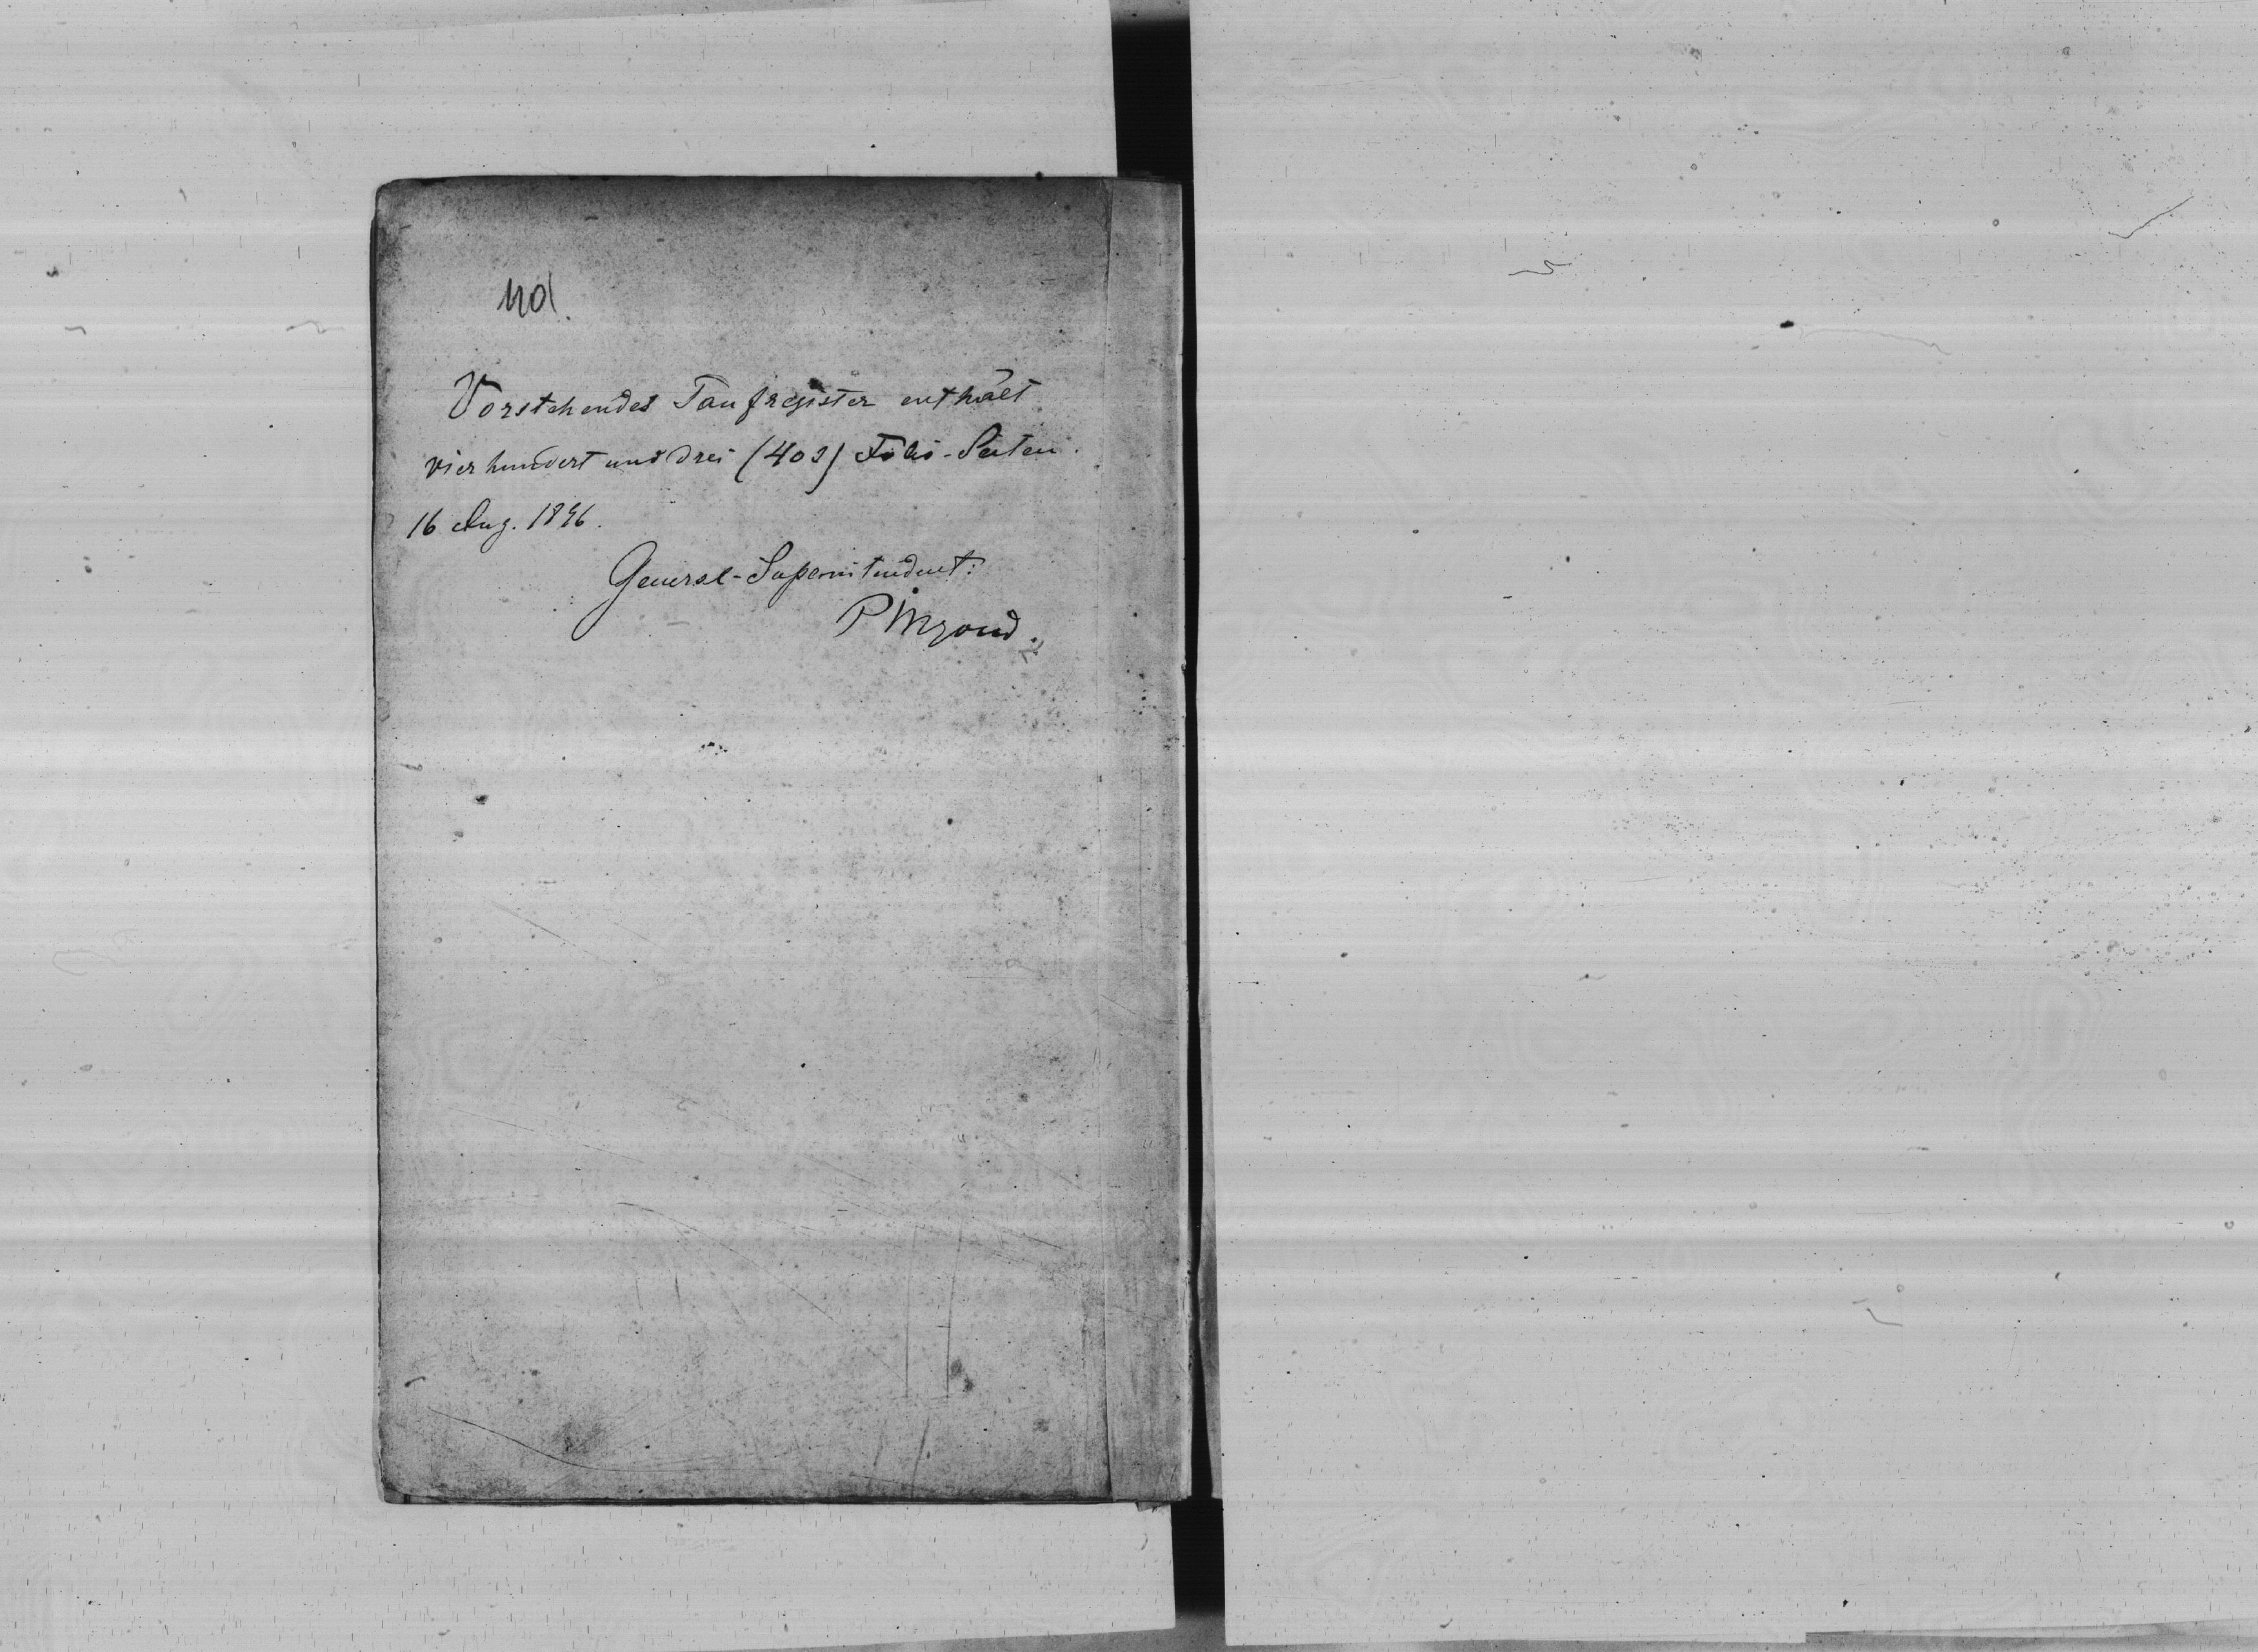 401.
Vorstehendes Taufregister enthält
vierhundert und drei (403) Folio-Seiten.
16 Aug. 1896.
General-Superintendent: